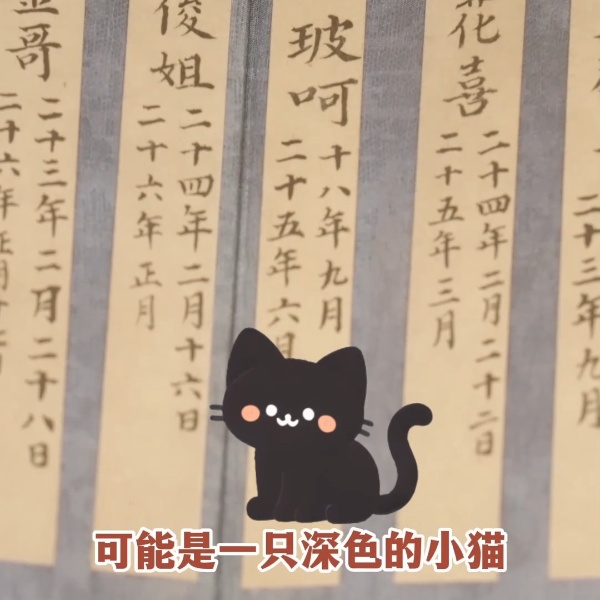 二十三年九月
化喜
二十四年二月二十二日
二十五年三月
玻呵
十八年九月
二十五年六月
俊姐
二十四年二月十六日
二十六年正月
哥
二十三年二月二十八日
二十六年正月十
可能是一只深色的小猫